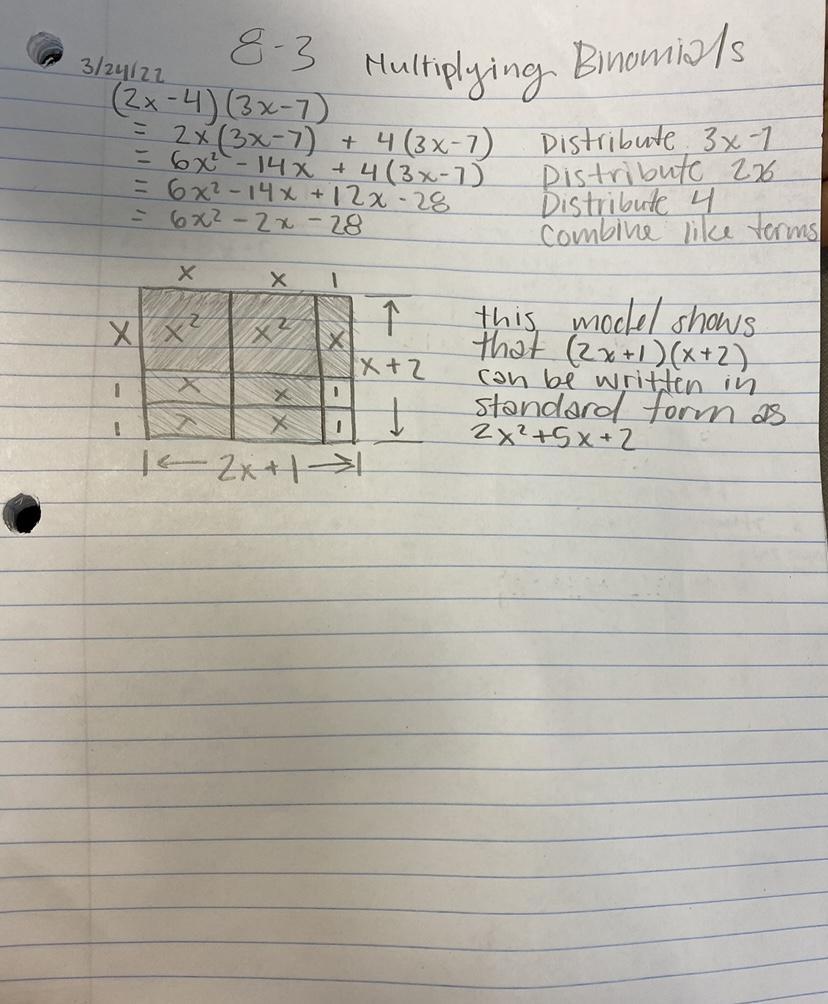 8-3 Multiplying Binomials
3/24/22
(2x-4)(3x-7)
= 2x(3x-7) + 4(3x-7) Distribute 3x-7
= 6x² -14x + 4(3x-7) Distribute 2x
= 6x² -14x +12x -28 Distribute 4
= 6x² -2x -28 Combine like terms
x x 1
x x² x² x
1 x x 1
1 x x 1
x+2
2x+1
this model shows
that (2x+1)(x+2)
can be written in
standard form as
2x²+5x+2